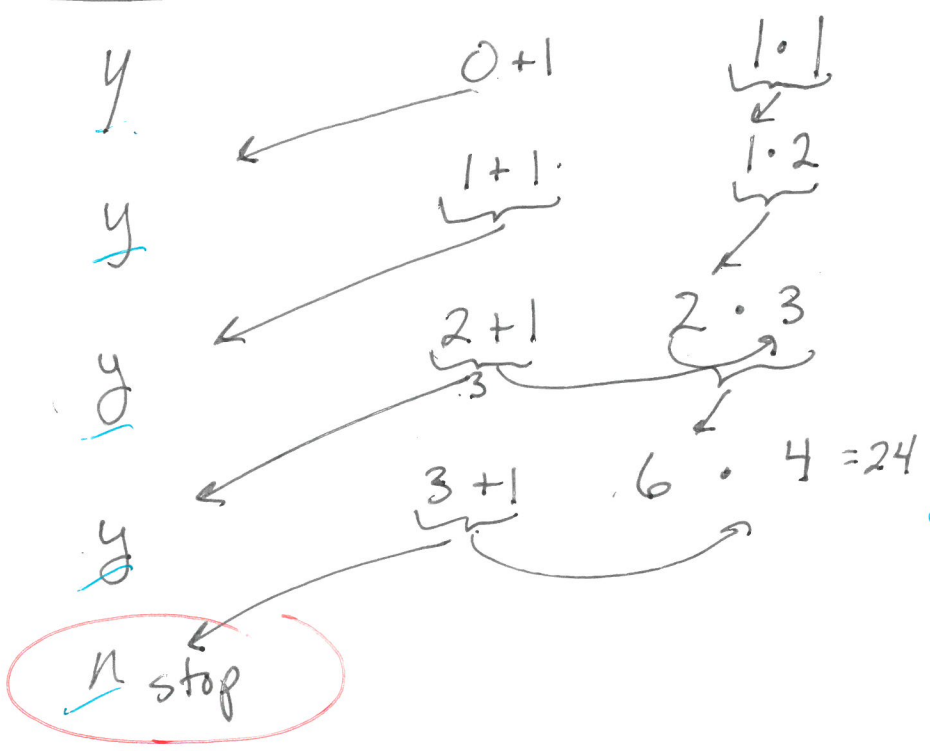 y 0+1 1·1
y 1+1 1·2
y 2+1 2·3
3
y 3+1 6·4=24
n stop